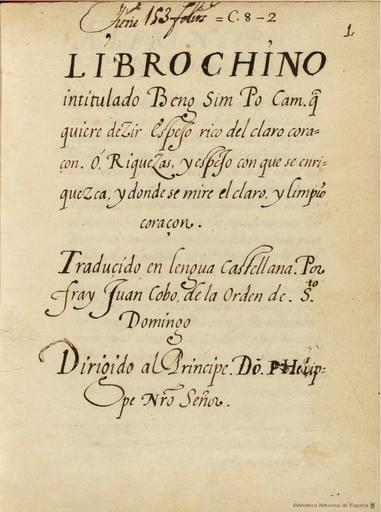 Tiene 153 folios = C. 8-2
1
LIBRO CHINO
intitulado Beng Sim Po Cam. q̃
quiere deZir Espejo rico del claro cora=
çon. O, RiqueZas, y espejo con que se enri=
queZca, y donde se mire el claro, y limpio
coraçon.
Traducido en lengua Castellana. Por
fray Juan Cobo, de la Orden de. S.to
Domingo
Dirigido al Principe. Dõ. PHelip=
pe Nr̃o Señor.
Biblioteca Nacional de España